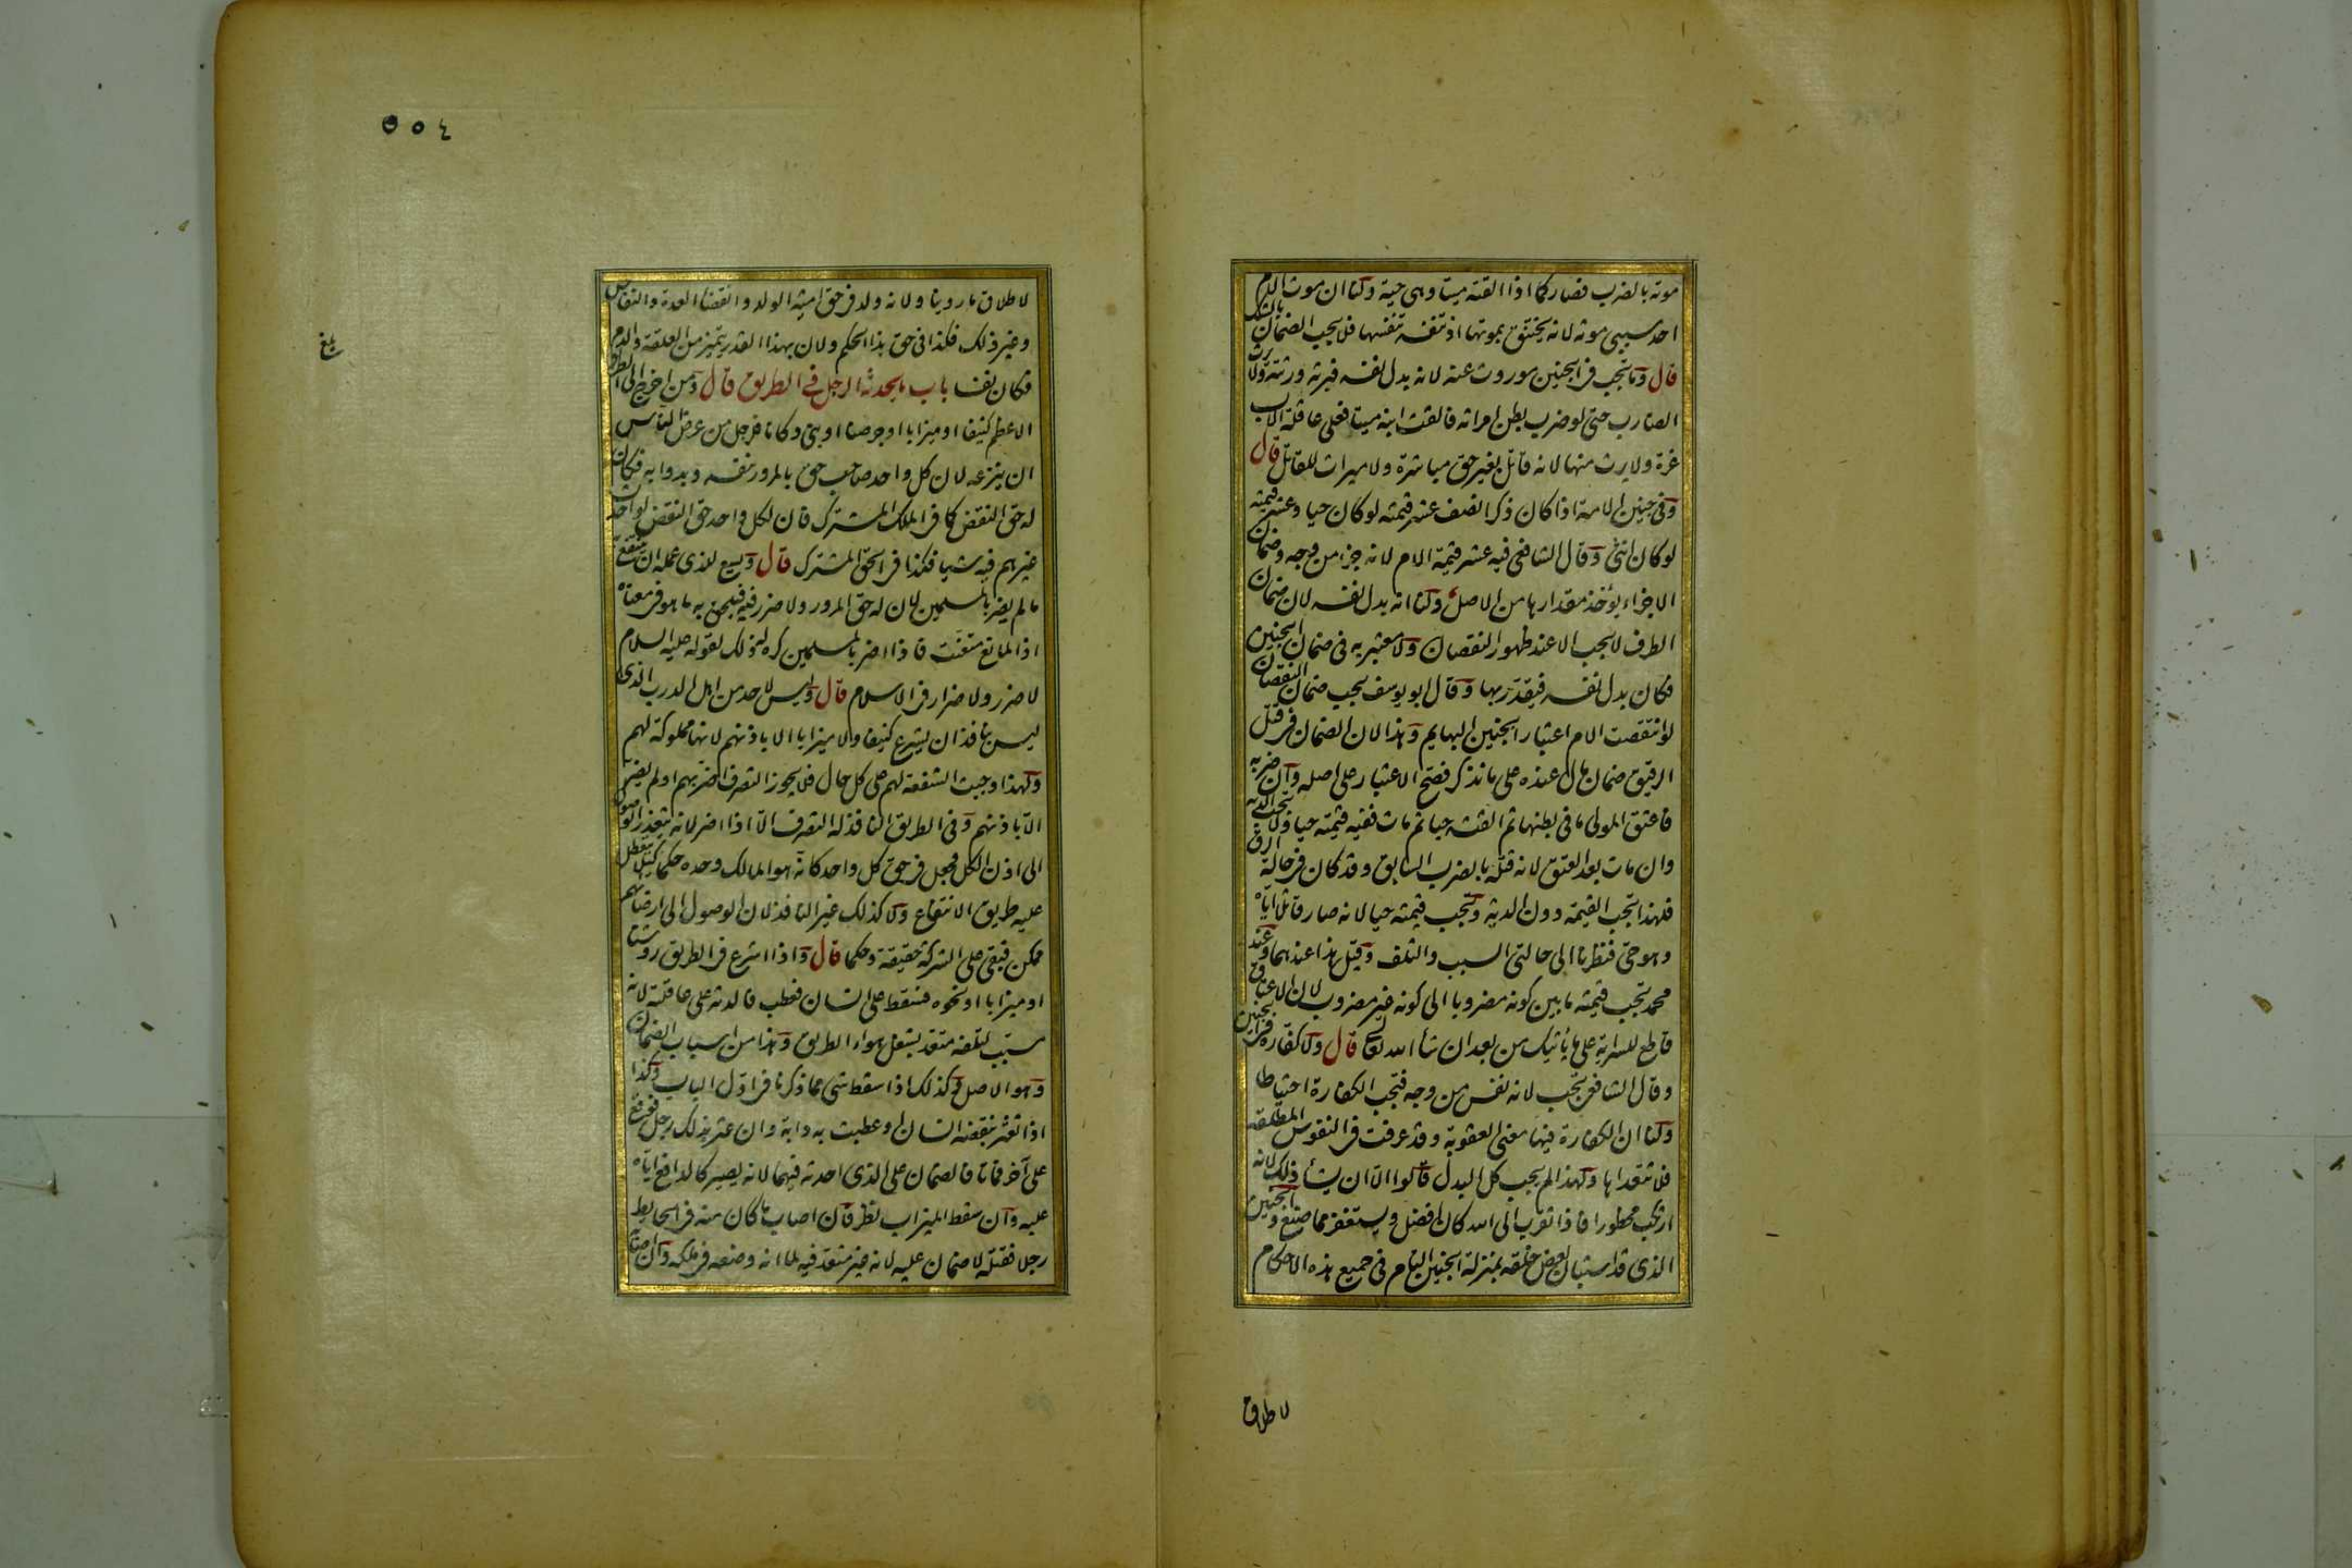 موته بالضرب فصار كما اذا القته ميتا وهى حية ولنا ان موت الام
احد سببى موته لانه يختنق بموتها اذ تنفسه تنفسها فلا يجب الضمان بالشك
قال وما يجب فى الجنين موروث عنه لانه بدل نفسه فيرثه ورثته ولا يرث
الضارب حتى لو ضرب بطن امراته فالقت ابنه ميتا فعلى عاقلة الاب
غرة ولا يرث منها لانه قاتل بغير حق مباشرة ولا ميراث للقاتل قال
وفى جنين الامة اذا كان ذكرا نصف عشر قيمته لو كان حيا وعشر قيمته
لو كان انثى وقال الشافعى فيه عشر قيمة الام لانه جزء من وجه وضمان
الاجزاء يؤخذ مقدارها من الاصل ولنا انه بدل نفسه لان ضمان
الطرف لا يجب الا عند ظهور النقصان ولا معتبر به فى ضمان الجنين
فكان بدل نفسه فيقدر بها وقال ابو يوسف يجب ضمان النقصان
لو انتقصت الام اعتبارا بجنين البهايم وهذا لان الضمان فى قتل
الرقيق ضمان مال عنده على ما نذكر فصح الاعتبار على اصله وان ضربه
فاعتق المولى ما فى بطنها ثم القته حيا ثم مات ففيه قيمته حيا ولا تجب الدية
وان مات بعد العتق لانه قتله بالضرب السابق وقد كان فى حالة الرق
فلهذا تجب القيمة دون الدية وتجب قيمته حيا لانه صار قاتلا اياه
وهو حى فنظرنا الى حالتى السبب والتلف وقيل هذا عندهما وعند
محمد تجب قيمته ما بين كونه مضروبا الى كونه غير مضروب لان الاعتاق
قاطع للسراية على ما يأتيك من بعد ان شأ الله تعالى قال ولا كفارة فى الجنين
وقال الشافعى تجب لانه نفس من وجه فتجب الكفارة احتياطا
ولنا ان الكفارة فيها معنى العقوبة وقد عرفت فى النفوس المطلقة
فلا تتعداها ولهذا لم يجب كل البدل قالوا الا ان يشأ ذلك لانه
ارتكب محظورا فاذا تقرب الى الله كان افضل ويستغفر مما صنع والجنين
الذى قد استبان بعض خلقه بمنزلة الجنين التام فى جميع هذه الاحكام
لاطلاق
٥٥٤
لاطلاق ما روينا ولانه ولد فى حق امية الولد وانقضا العدة والنفاس
وغير ذلك فكذا فى حق هذا الحكم ولان بهذا القدر يتميز من العلقة والدم
فكان نفسا باب ما يحدثه الرجل فى الطريق قال ومن اخرج الى الطريق
الاعظم كنيفا او ميزابا او جرصنا او بنى دكانا فرجل من عرض الناس
ان ينزعه لان كل واحد صاحب حق بالمرور بنفسه وبدوابه فكان
له حق النقض كما فى الملك المشترك فان لكل واحد حق النقض لو احدث
غيرهم فيه شيا فكذا فى الحق المشترك قال ويسع للذى عمله ان ينتفع
ما لم يضر بالمسلمين لان له حق المرور ولا ضرر فيه فيلحق به ما هو فى معناه
اذ المانع متعنت فاذا اضر بالمسلمين كره له ذلك لقوله عليه السلام
لا ضرر ولا ضرار فى الاسلام قال وليس لاحد من اهل الدرب الذى
ليس بنافذ ان يشرع كنيفا ولا ميزابا الا باذنهم لانها مملوكة لهم
ولهذا وجبت الشفعة لهم على كل حال فلا يجوز التصرف اضر بهم او لم يضر
الا باذنهم وفى الطريق النافذ له التصرف الا اذا اضر لانه يتعذر الوصول
الى اذن الكل فجعل فى حق كل واحد كانه هو المالك وحده حكما كيلا يتعطل
عليه طريق الانتفاع ولا كذلك غير النافذ لان الوصول الى ارضائهم
ممكن فبقى على الشركة حقيقة وحكما قال واذا اشرع فى الطريق روشنا
او ميزابا او نحوه فسقط على انسان فعطب فالدية على عاقلته لانه
سبب لتلفه متعد بشغل هواء الطريق وهذا من اسباب الضمان
وهو الاصل وكذلك اذا سقط شى مما ذكرنا فى اول الباب وكذا
اذا تعثر بنقضه انسان او عطبت به دابة وان عثر بذلك رجل فوقع
على آخر فماتا فالضمان على الذى احدثه فيهما لانه يصير كالدافع اياه
عليه وان سقط الميزاب نظر فان اصاب ما كان منه فى الحايط
رجلا فقتله لا ضمان عليه لانه غير متعد فيه لما انه وضعه فى ملكه وان اصابه
بلغ